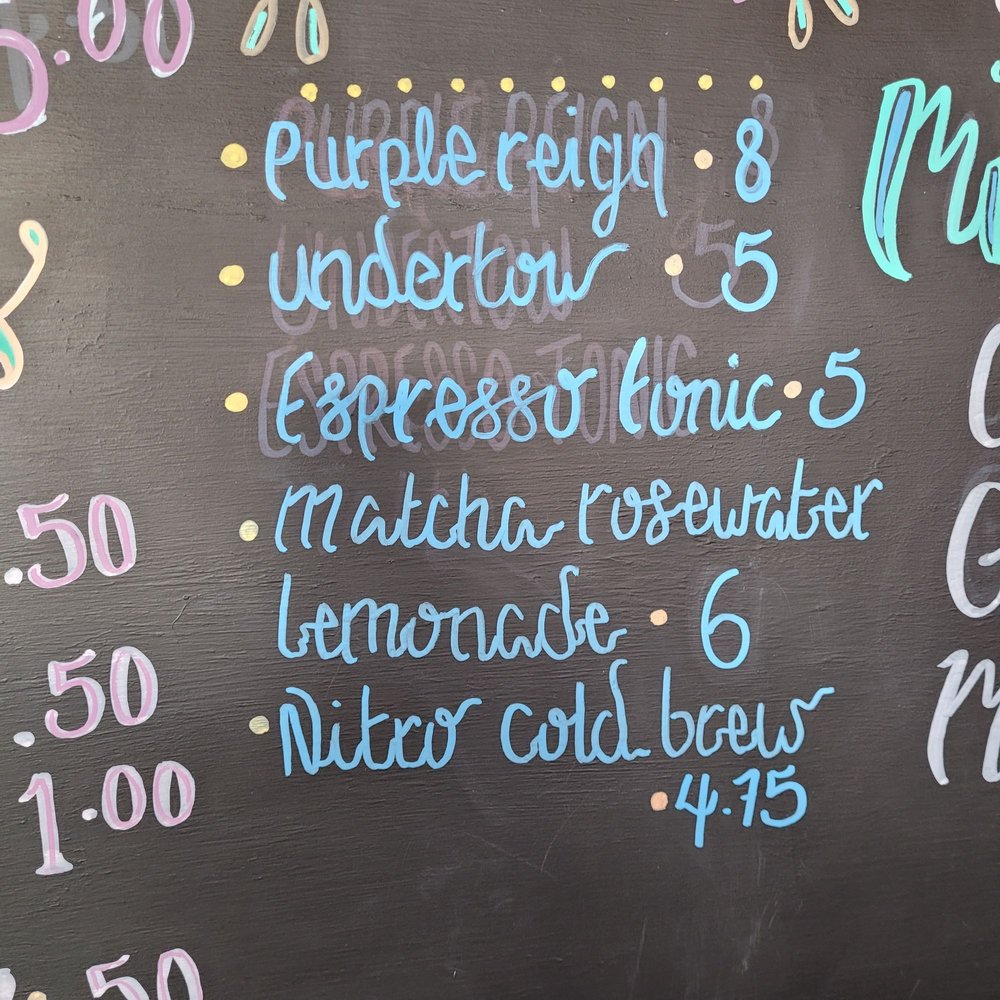 5.00
Purple reign · 8
undertow · 5
Espresso tonic · 5
Matcha rosewater
Lemonade · 6
Nitro cold brew
· 4.75
.50
.50
1.00
.50